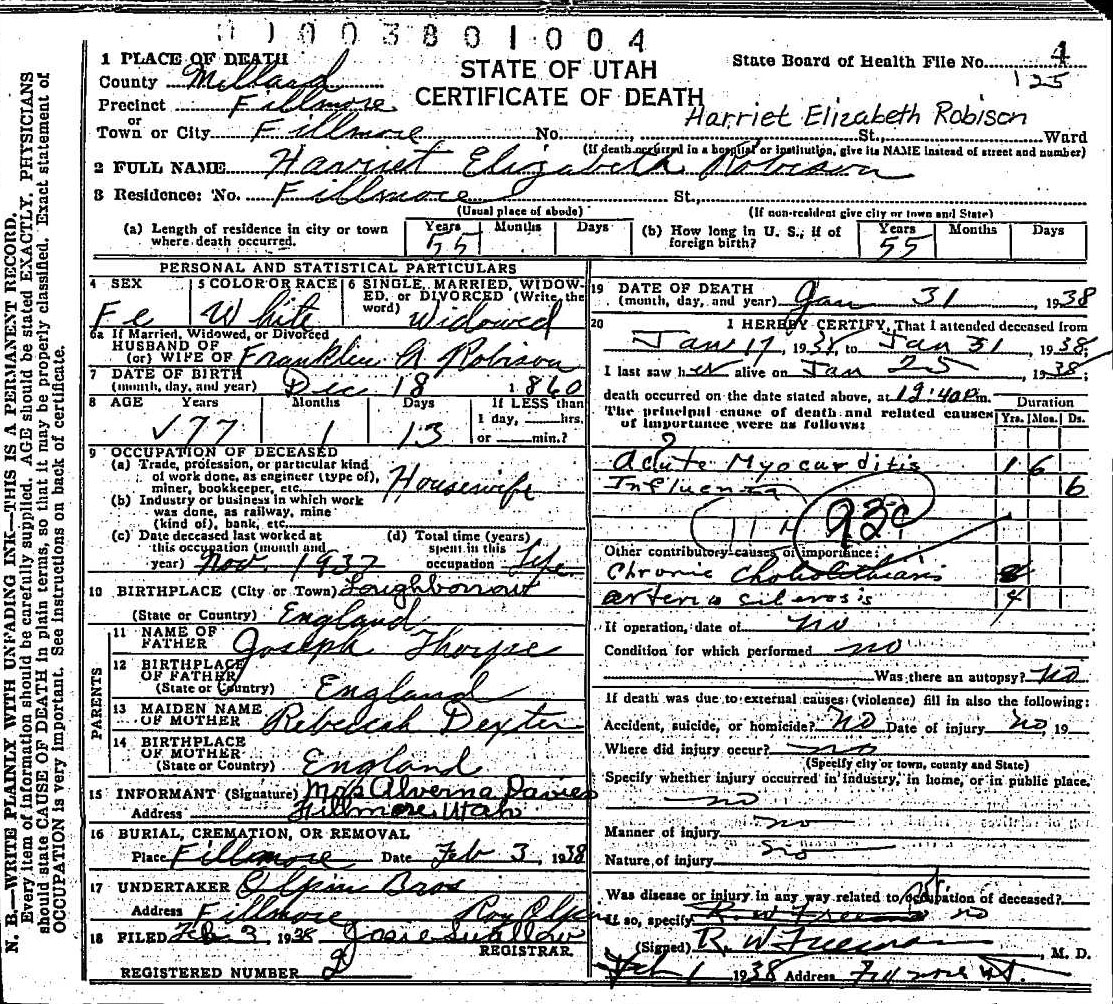 01003801004
1 PLACE OF DEATH
STATE OF UTAH
State Board of Health File No. 4
125
County Millard
CERTIFICATE OF DEATH
Precinct Fillmore
Harriet Elizabeth Robison
or
Town or City Fillmore No. St., Ward
(If death occurred in a hospital or institution, give its NAME instead of street and number)
2 FULL NAME Harriet Elizabeth Robison
3 Residence: No. Fillmore St.,
(Usual place of abode) (If non-resident give city or town and State)
(a) Length of residence in city or town where death occurred. Years 55 Months Days
(b) How long in U. S., if of foreign birth? Years 55 Months Days
PERSONAL AND STATISTICAL PARTICULARS
4 SEX Fe
5 COLOR OR RACE White
6 SINGLE, MARRIED, WIDOWED, or DIVORCED (Write the word) Widowed
6a If Married, Widowed, or Divorced
HUSBAND OF
(or) WIFE OF Franklin A Robison
7 DATE OF BIRTH
(month, day, and year) Dec 18 1860
8 AGE Years Months Days If LESS than
77 1 13 1 day, hrs.
or min.?
9 OCCUPATION OF DECEASED
(a) Trade, profession, or particular kind
of work done, as engineer (type of),
miner, bookkeeper, etc. Housewife
(b) Industry or business in which work
was done, as railway, mine
(kind of), bank, etc.
(c) Date deceased last worked at
this occupation (month and
year) Nov. 1937
(d) Total time (years)
spent in this
occupation Life
10 BIRTHPLACE (City or Town) Loughborrow
(State or Country) England
PARENTS
11 NAME OF
FATHER Joseph Thorpe
12 BIRTHPLACE
OF FATHER
(State or Country) England
13 MAIDEN NAME
OF MOTHER Rebecah Dexter
14 BIRTHPLACE
OF MOTHER
(State or Country) England
15 INFORMANT (Signature) Mrs Alverna Davies
Address Fillmore, Utah
16 BURIAL, CREMATION, OR REMOVAL
Place Fillmore Date Feb 3, 1938
17 UNDERTAKER Olpin Bros
Address Fillmore Roy Olpin
18 FILED Feb 3, 1938 Josie Swallow
REGISTRAR.
REGISTERED NUMBER 2
19 DATE OF DEATH
(month, day, and year) Jan 31, 1938
20 I HEREBY CERTIFY, That I attended deceased from
Jan 17, 1938, to Jan 31, 1938;
I last saw her alive on Jan 25, 1938;
death occurred on the date stated above, at 12:40 P.m.
The principal cause of death and related causes
of importance were as follows:
Duration
Yrs. Mos. Ds.
?
Acute Myocarditis 1 6
Influenza 6
11 A 93c
Other contributory causes of importance:
Chronic Choholithiasis
arterio silerosis 4
If operation, date of no
Condition for which performed no
Was there an autopsy? no
If death was due to external causes (violence) fill in also the following:
Accident, suicide, or homicide? no Date of injury no, 19
Where did injury occur? no
(Specify city or town, county and State)
Specify whether injury occurred in industry, in home, or in public place.
no
Manner of injury no
Nature of injury no
Was disease or injury in any way related to occupation of deceased?
If so, specify R. W. Freeman no
(Signed) R. W Freeman, M. D.
Feb 1 1938 Address Fillmore Ut.
N. B.—WRITE PLAINLY WITH UNFADING INK—THIS IS A PERMANENT RECORD.
Every item of information should be carefully supplied. AGE should be stated EXACTLY. PHYSICIANS
should state CAUSE OF DEATH in plain terms, so that it may be properly classified. Exact statement of
OCCUPATION is very important. See instructions on back of certificate.